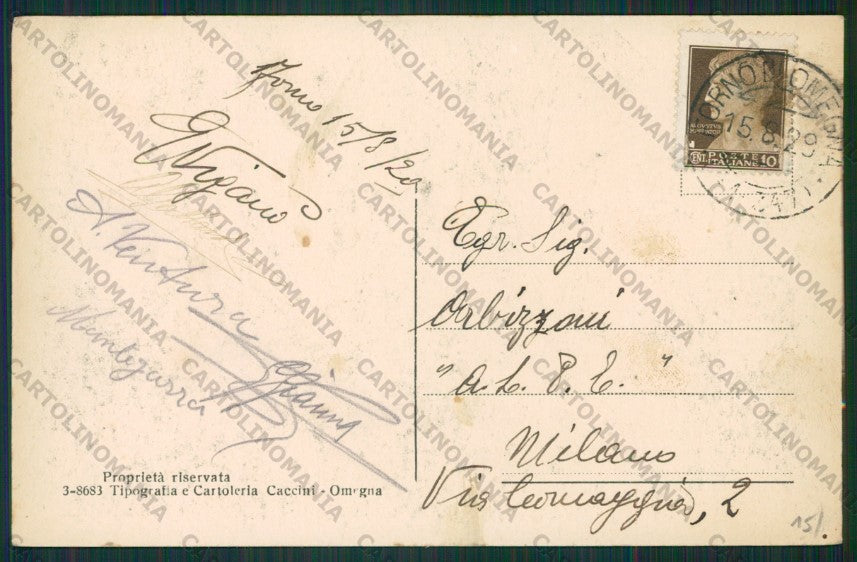 Forno 15/8/29
G Viganò
A. Ventura
Gianni
Montegarza
Proprietà riservata
3-8683 Tipografia e Cartoleria Caccini - Omegna
FORNO DI OMEGNA
15.8.29
POSTE
ITALIANE
CENT. 10
Egr. Sig.
Orbizzoni
"A. L. P. E."
Milano
2
15/.
CARTOLINOMANIA